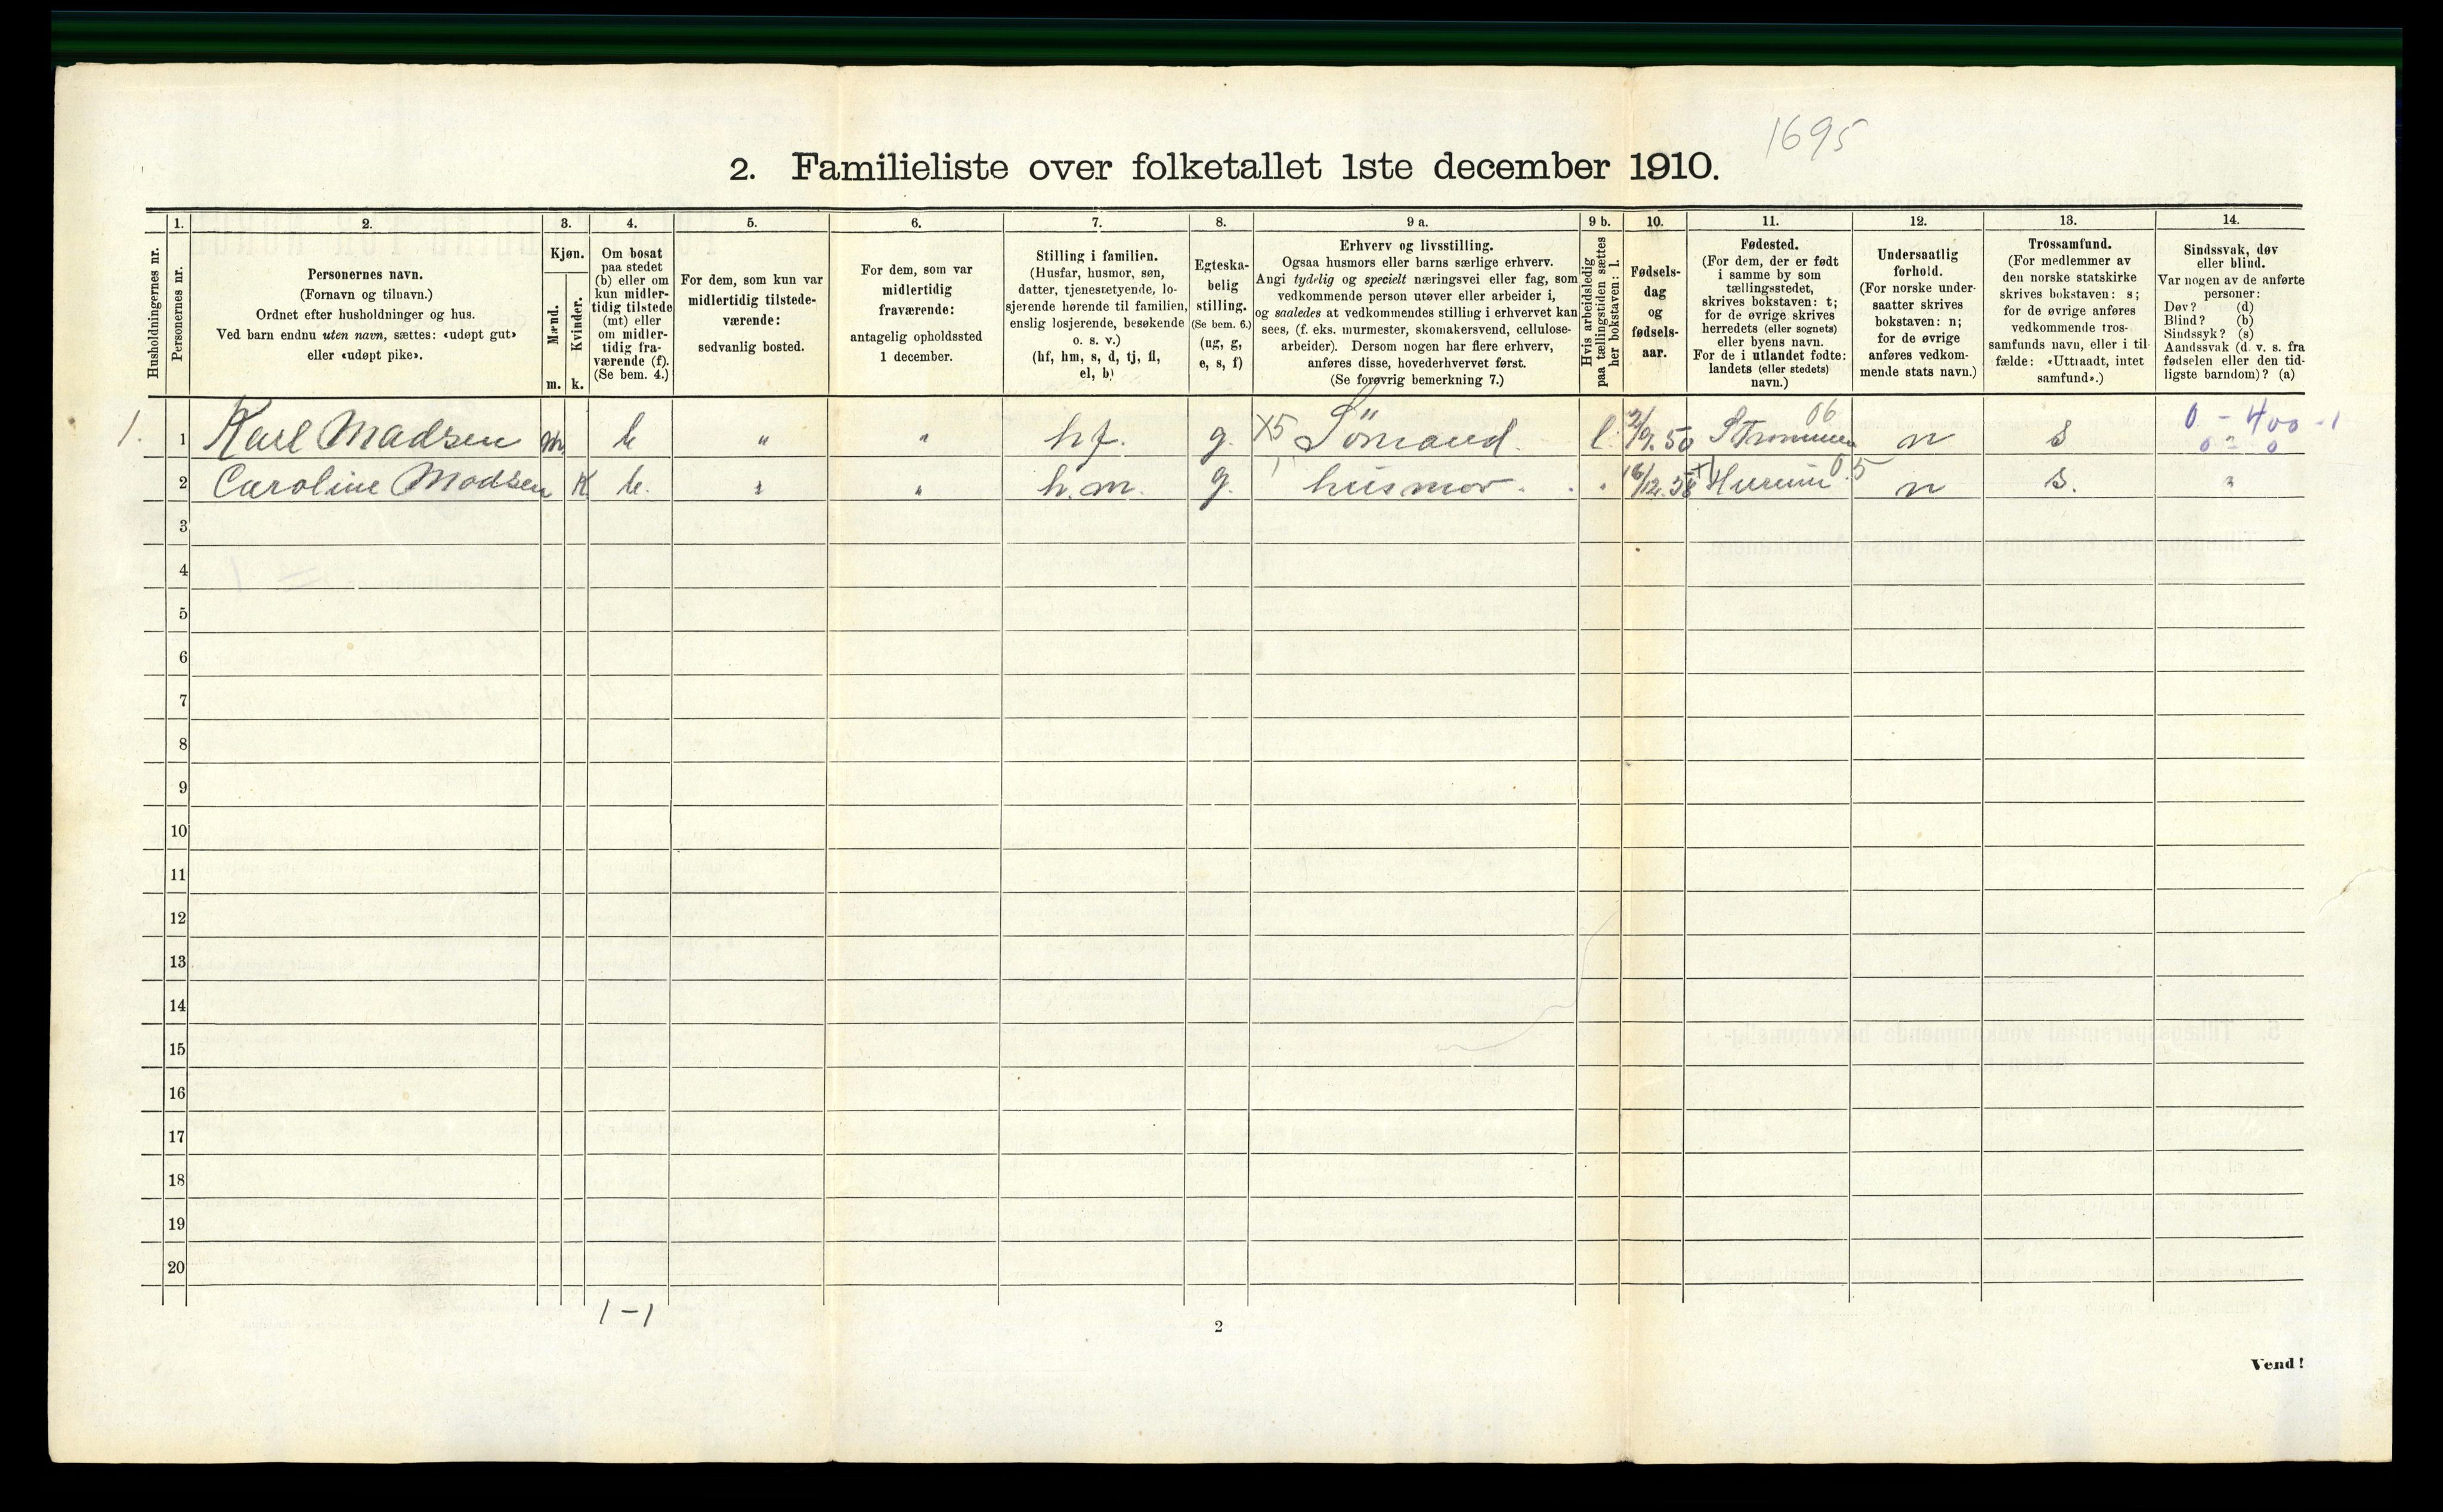 1695
2. Familieliste over folketallet 1ste december 1910.
Husholdningernes nr.
1.
Personernes nr.
2.
Personernes navn.
(Fornavn og tilnavn.)
Ordnet efter husholdninger og hus.
Ved barn endnu uten navn, sættes: «udøpt gut»
eller «udøpt pike».
3.
Kjøn.
Mænd.
Kvinder.
m. k.
4.
Om bosat
paa stedet
(b) eller om
kun midler-
tidig tilstede
(mt) eller
om midler-
tidig fra-
værende (f).
(Se bem. 4.)
5.
For dem, som kun var
midlertidig tilstede-
værende:
sedvanlig bosted.
6.
For dem, som var
midlertidig
fraværende:
antagelig opholdssted
1 december.
7.
Stilling i familien.
(Husfar, husmor, søn,
datter, tjenestetyende, lo-
sjerende hørende til familien,
enslig losjerende, besøkende
o. s. v.)
(hf, hm, s, d, tj, fl,
el, b)
8.
Egteska-
belig
stilling.
(Se bem. 6.)
(ug, g,
e, s, f)
9 a.
Erhverv og livsstilling.
Ogsaa husmors eller barns særlige erhverv.
Angi tydelig og specielt næringsvei eller fag, som
vedkommende person utøver eller arbeider i,
og saaledes at vedkommendes stilling i erhvervet kan
sees, (f. eks. murmester, skomakersvend, cellulose-
arbeider). Dersom nogen har flere erhverv,
anføres disse, hovederhvervet først.
(Se forøvrig bemerkning 7.)
9 b.
Hvis arbeidsledig
paa tællingstiden sættes
her bokstaven: l.
10.
Fødsels-
dag
og
fødsels-
aar.
11.
Fødested.
(For dem, der er født
i samme by som
tællingsstedet,
skrives bokstaven: t;
for de øvrige skrives
herredets (eller sognets)
eller byens navn.
For de i utlandet fødte:
landets (eller stedets)
navn.)
12.
Undersaatlig
forhold.
(For norske under-
saatter skrives
bokstaven: n;
for de øvrige
anføres vedkom-
mende stats navn.)
13.
Trossamfund.
(For medlemmer av
den norske statskirke
skrives bokstaven: s;
for de øvrige anføres
vedkommende tros-
samfunds navn, eller i til-
fælde: «Uttraadt, intet
samfund».)
14.
Sindssvak, døv
eller blind.
Var nogen av de anførte
personer:
Døv? (d)
Blind? (b)
Sindssyk? (s)
Aandssvak (d. v. s. fra
fødselen eller den tid-
ligste barndom)? (a)
1. 1 Karl Madsen m b " " hf. g. X5 Sömand. l. 2/9. 50 Strømmen 06 n s 0 - 400 - 1
0 - 0
2 Caroline Madsen K b. " " h.m. g. husmor. " 16/12. 58 Hurum 05 n s. "
3
4
5
6
7
8
9
10
11
12
13
14
15
16
17
18
19
20
1 - 1
2
Vend!